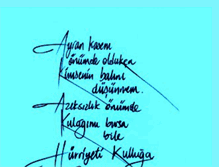 Ayran kasem
önümde oldukça
Kimsenin balını
düşünmem.
Azıksızlık
Kulağımı bursa
bile
Hürriyeti Kulluğa